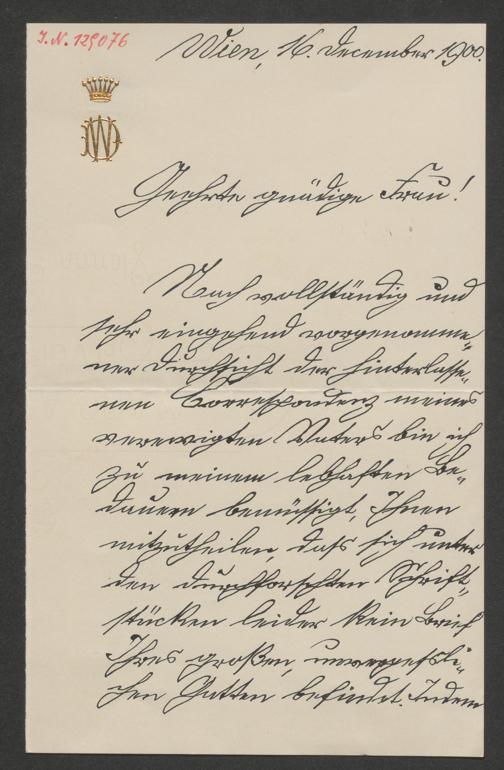 I.N. 129076
Wien, 16. December 1900.
Geehrte gnädige Frau!
Nach vollständig und
sehr eingehend vorgenomme-
ner Durchsicht der hinterlasse-
nen Correspondenz meines
verewigten Vaters bin ich
zu meinem lebhaften Be-
dauern bemüssigt, Ihnen
mitzutheilen, dass sich unter
den durchforschten Schrift-
stücken leider kein Brief
Ihres großen, unvergessli-
chen Gatten befindet. Indem